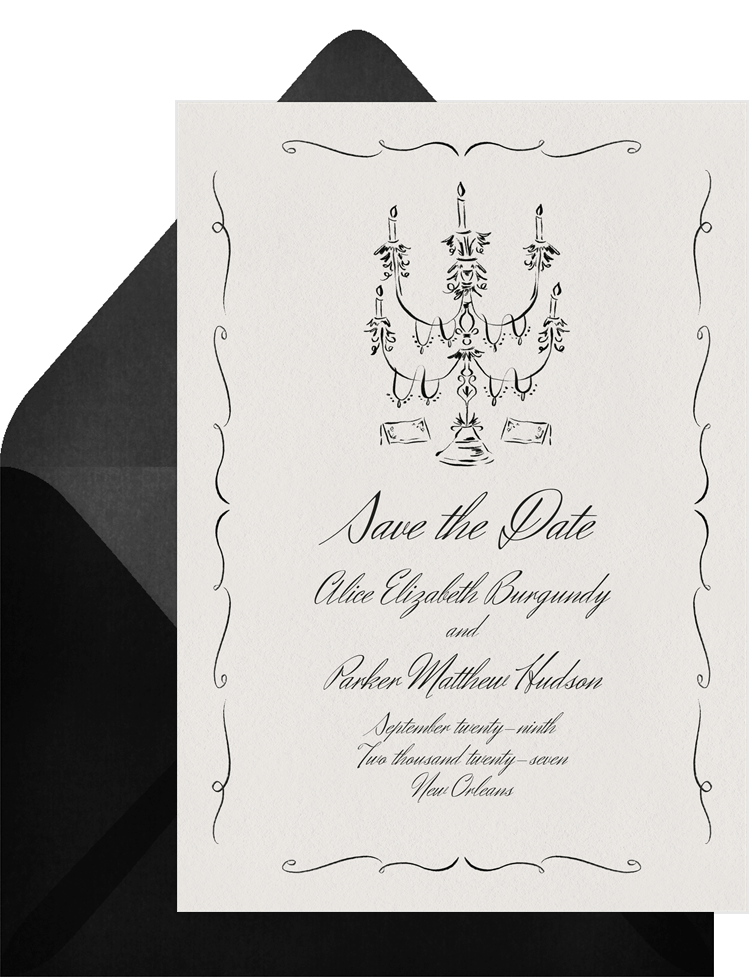 Save the Date
Alice Elizabeth Burgundy
and
Parker Matthew Hudson
September twenty-ninth
Two thousand twenty-seven
New Orleans